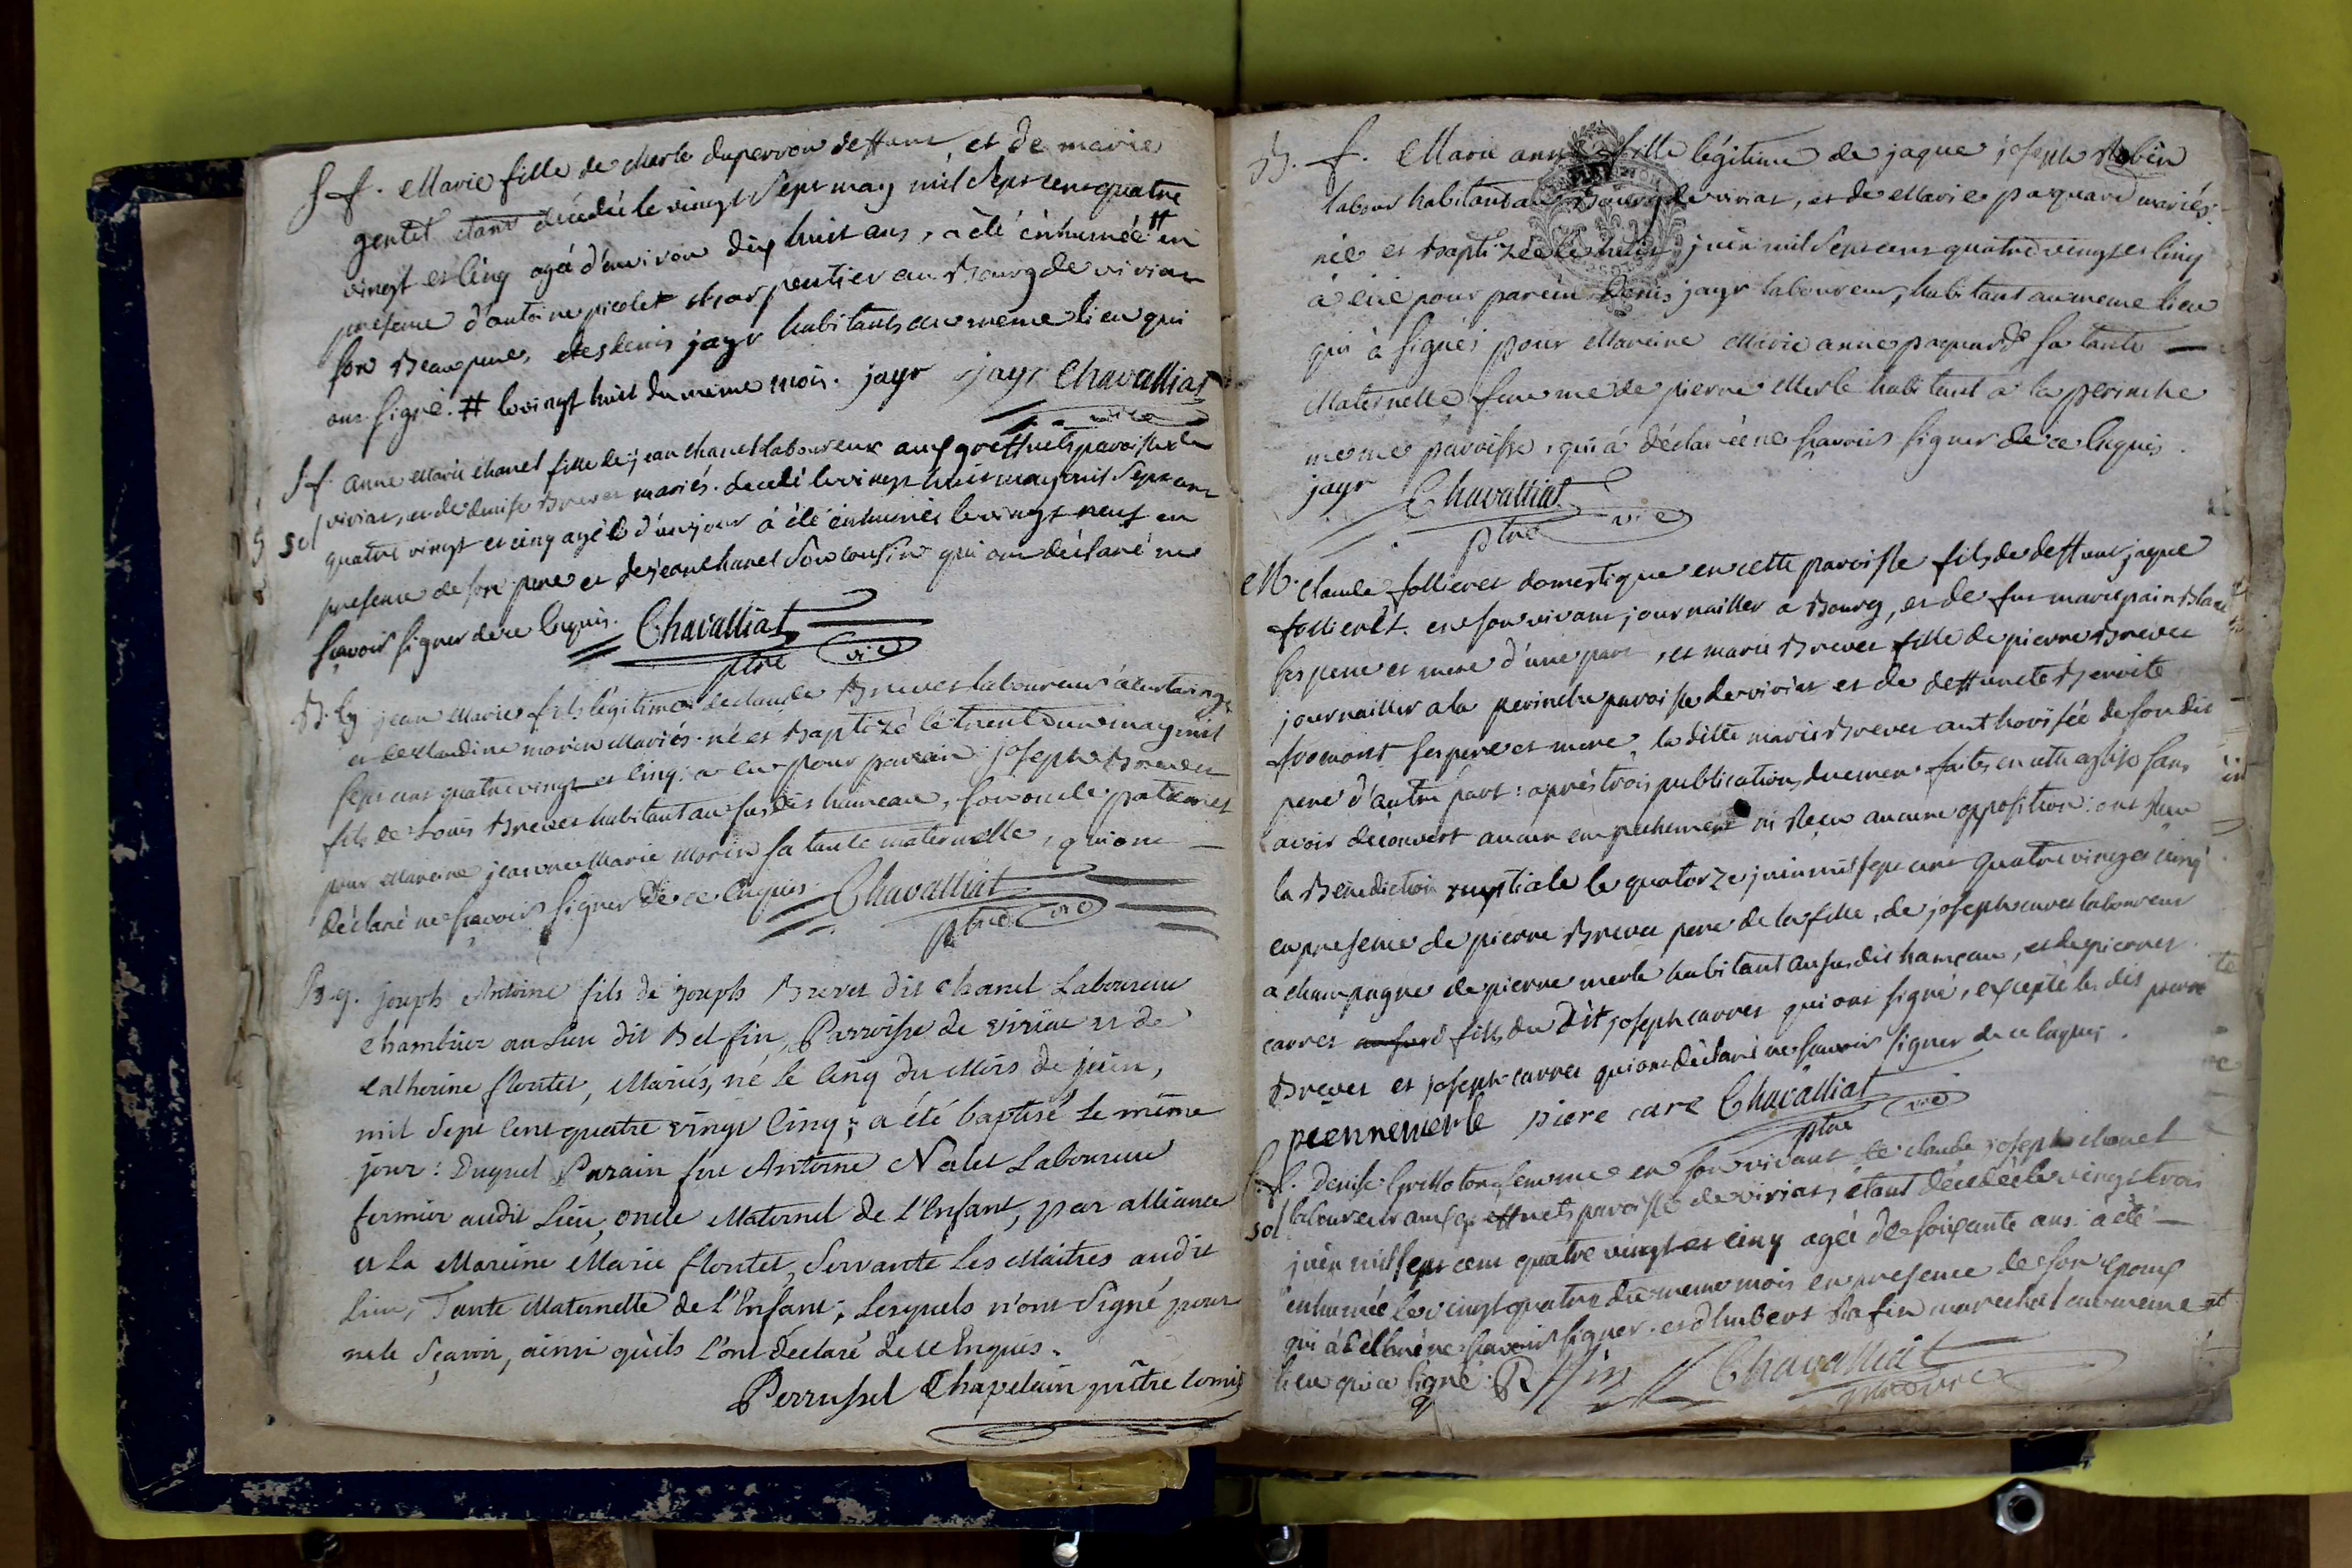 S f. Marie fille de Merle duperrou deffunt et de marie
gentet etant décédée le vingt sept may mil sept cens quatre
vingt et cinq agée d'environ dix huit ans, a été enhumée # en
presence d'antoine picolet charpentier au Bourg de viriat
son Beaupere, et denis jayr habitants au meme lieu qui
ont signé. # le vingt huit du meme mois. jayr jayr Chavalliat
vice
S f. anne Marie Chanel fille de jean Chanel laboureur aux greffiets paroisse de
viriat, et de denise Brevet mariés. décedé le vingt huit may mil sept cent
sol
quatre vingt et cinq agée d'un jour à été enhumée le vingt neuf en
presence de son pere et de jean Chanel son cousin qui ont déclaré ne
sçavoir signer de ce Enquis. Chavalliat
ptre vic
B. g. jean Marie fils légitime de claude Brevet laboureur à
et de Claudine morin Mariés né et Baptizé le trente un may mil
sept cens quatre vingt et cinq: a eu pour parein joseph Brevet
fils de Louis Brevet habitant au susdit hameau, son oncle paternel
pour Mareine jeanne Marie Morin sa tante maternelle, qui ont
déclaré ne sçavoir signer de ce Enquis Chavalliat
ptre vic
B. g. Joseph Antoine fils de Joseph Brevet dit Chanel Laboureur
chambrier au Lieu dit Bel fin, Parroisse de viriat et de
Catherine flontet, Mariés, né le Cinq du Mois de juin,
mil Sept Cent quatre vingt Cinq; a été baptisé le même
jour: Duquel Parain fut Antoine Nalet Laboureur
fermier audit Lieu, oncle Maternel de l'Enfant, par alliance
et la Mareine Marie flontet, Servante Les Maitres audit
Lieu, Tante Maternelle de l'Enfant; Lesquels n'ont Signé pour
ne le Sçavoir, ainsi qu'ils l'ont déclaré de ce Enquis.
Perrussel Chapelain prêtre Comis
B. f. Marie anne fille légitime de jaque joseph Robin
labour habitant au Bourg de viriat, et de Marie paquard mariés
née et Baptizée le huit juin mil sept cens quatre vingt et cinq
à eue pour parein Denis jayr laboureur, habitant au meme lieu
qui à signé; pour Mareine Marie anne paquard sa tante
Maternelle femme de pierre Merle habitant a la perinche
meme paroisse, qui à déclarée ne sçavoir signer de ce Enquis.
jayr Chavalliat
ptre vic
M. Claude follieret domestique en cette paroisse fils de deffunt jaque
follieret. en son vivant journaillier a Bourg, et de fut marie pain Blanc
ses pere et mere d'une part, et marie Brevet fille de pierre Brevet
journaillier a la perinche paroisse de viriat et de deffuncte Benoite
fromont ses pere et mere, la ditte marie Brevet authorisée de son dit
pere d'autre part: aprés trois publications duement faites en cette eglise sans
avoir découvert aucun empechement ni Reçu aucune opposition: ont Reçu
la Bénédiction nuptiale le quatorze juin mil sept cent quatre vingt et cinq
en presence de pierre Brevet pere de la fille, de joseph carret laboureur
a champagne de pierre merle habitant au susdit hameau, et de pierre
carret fils du dit joseph carret qui ont signé, excepté les dits pierre
Brevet et joseph carret qui ont déclaré ne sçavoir signer de ce Enquis.
pierre merle piere care Chavalliat
ptre vic
S. f. Denise Grilloton femme en son vivant de claude joseph chanel
laboureur aux greffiets paroisse de viriat, étant décédée le vingt trois
sol
juin mil sept cent quatre vingt et cinq agée de soixante ans a été
enhumée le vingt quatre du meme mois en presence de son Epoux
qui à déclaré ne sçavoir signer. et d'hubert Rafin marechal au meme
lieu qui a signé. Raffin Chavalliat